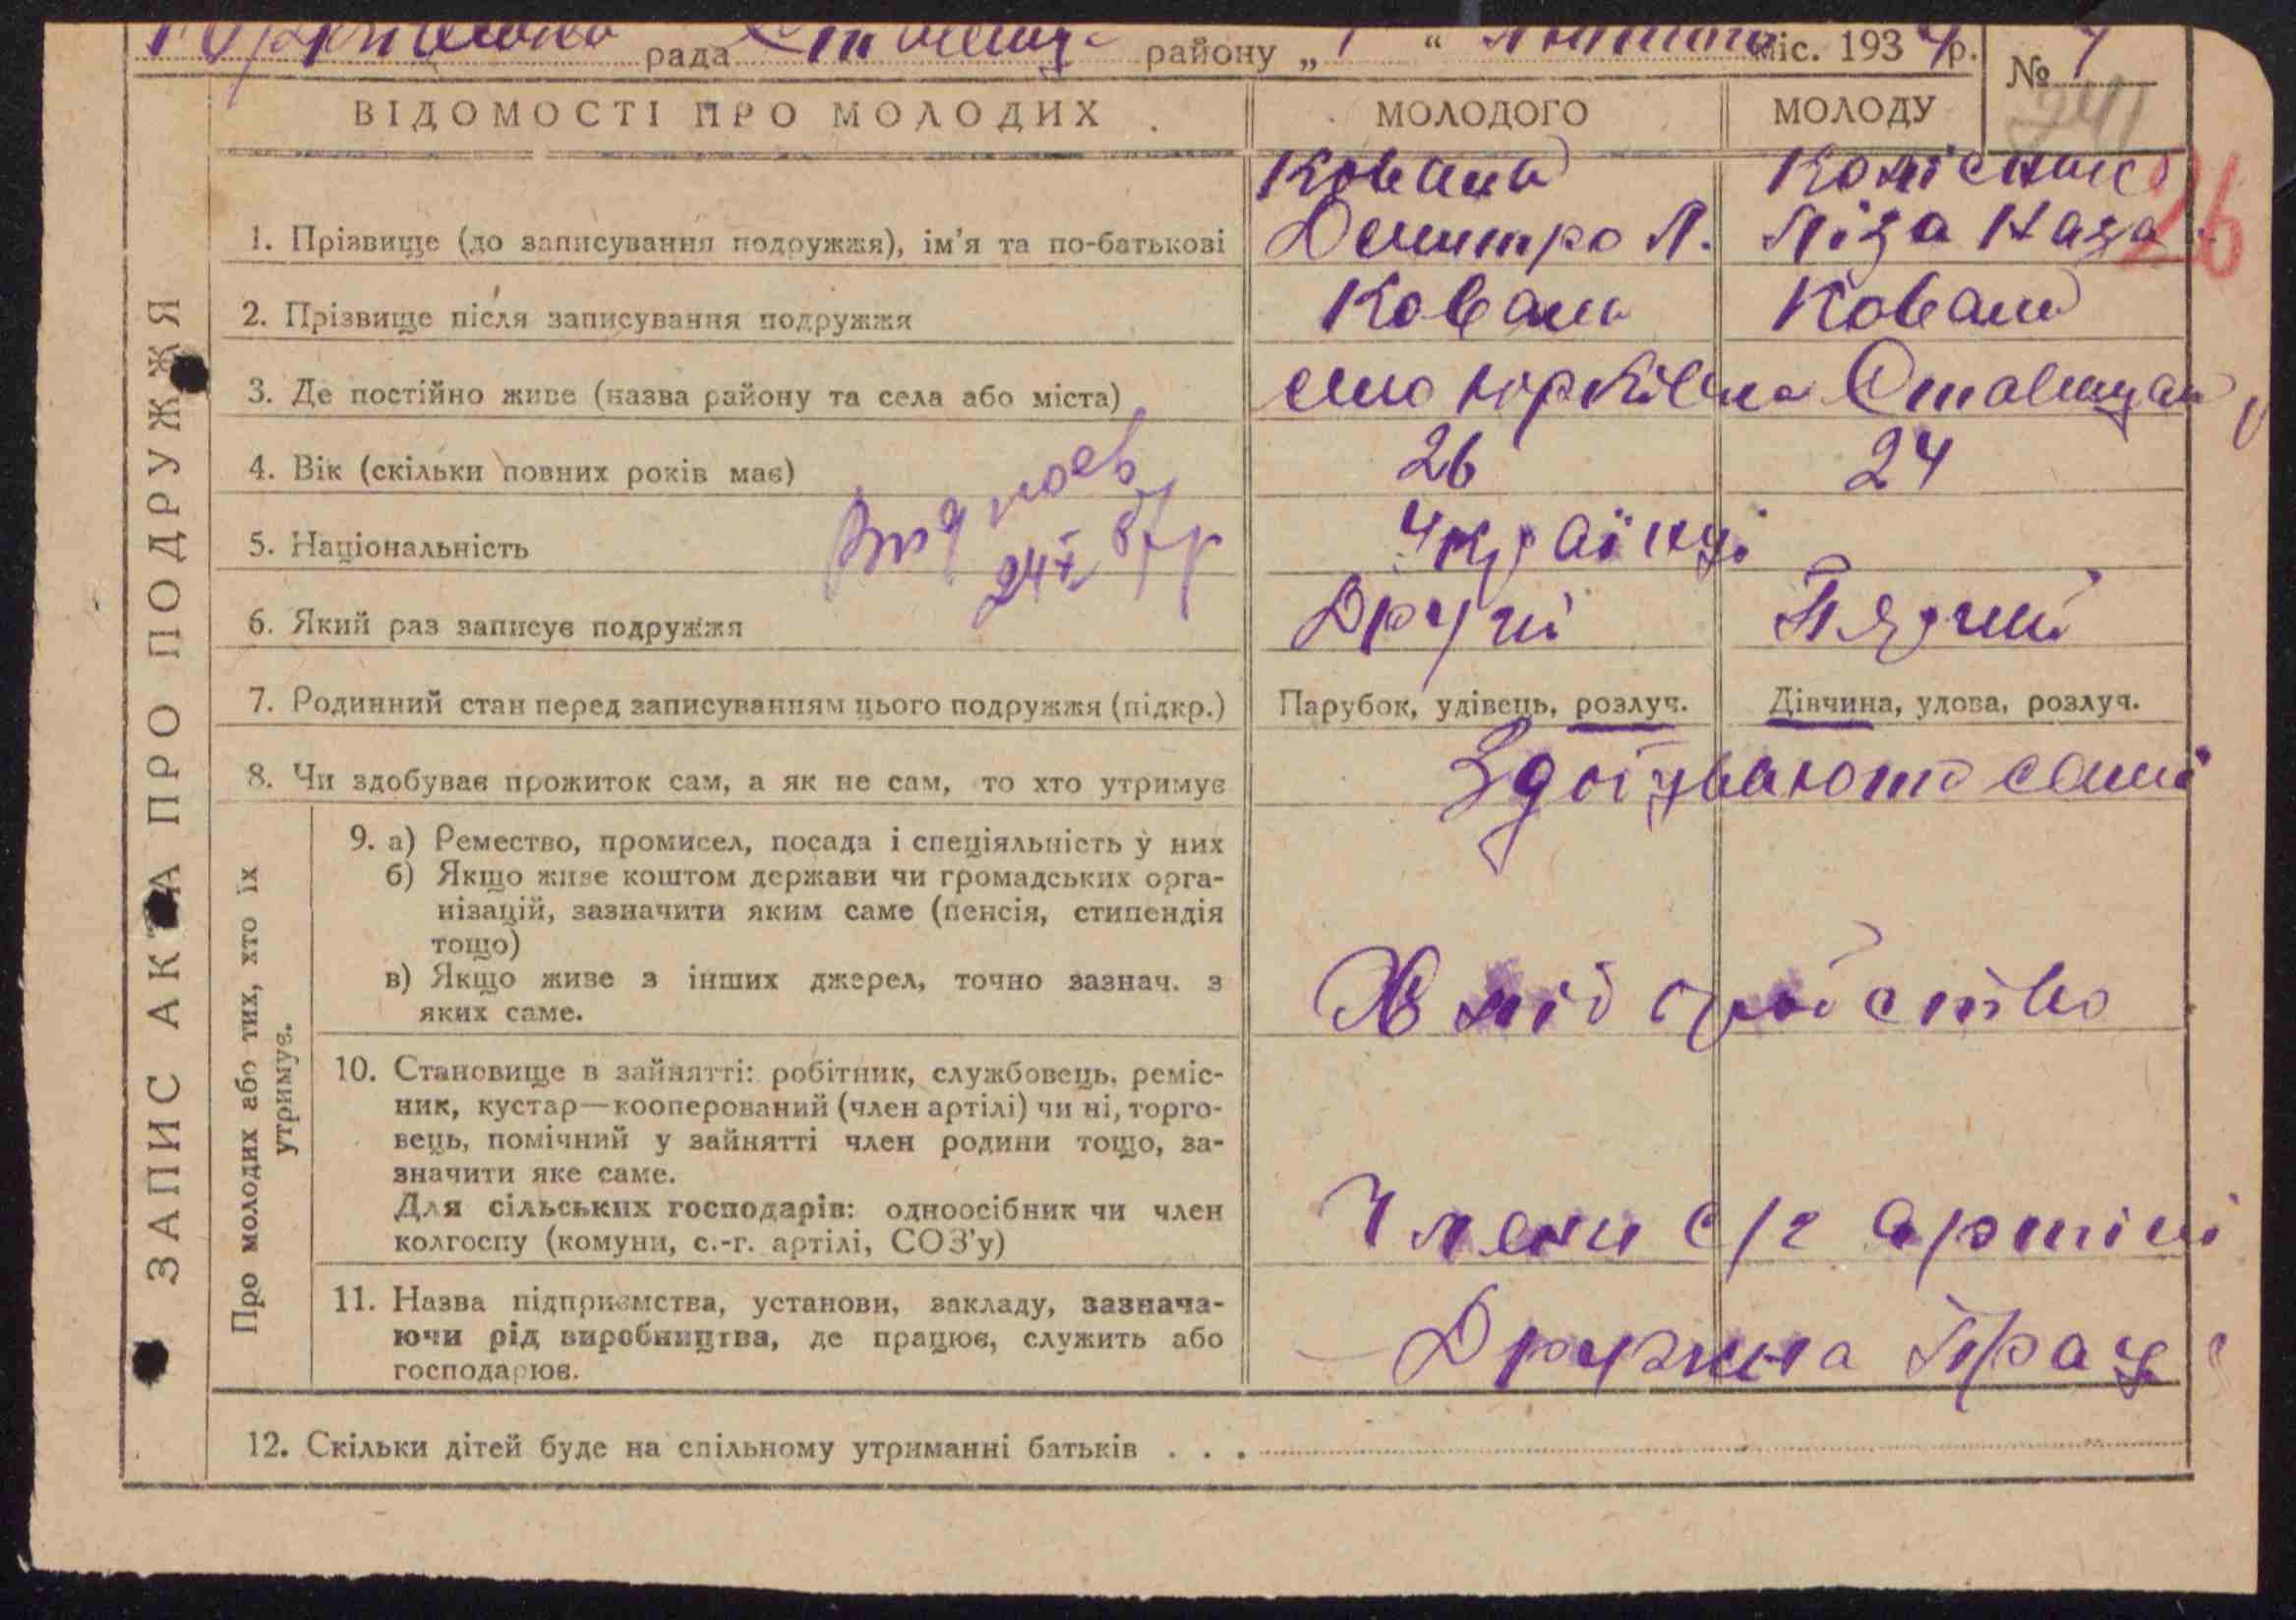 рада району „ 1 “ Лютого міс. 1934 р. № 7
ВІДОМОСТІ ПРО МОЛОДИХ МОЛОДОГО МОЛОДУ
241
26
ЗАПИС АКТА ПРО ПОДРУЖЖЯ
Коваль
1. Прізвище (до записування подружжя), ім'я та по-батькові Дмитро Л. Ліза Наза
2. Прізвище після записування подружжя Коваль Коваль
3. Де постійно живе (назва району та села або міста) село Юрківка
4. Вік (скільки повних років має) 26 24
5. Національність Українці
6. Який раз записує подружжя Другий Перший
7. Родинний стан перед записуванням цього подружжя (підкр.) Парубок, удівець, розлуч. Дівчина, удова, розлуч.
8. Чи здобуває прожиток сам, а як не сам, то хто утримує Здобувають самі
Про молодих або тих, хто їх
утримує.
9. а) Ремество, промисел, посада і спеціяльність у них
б) Якщо живе коштом держави чи громадських орга-
нізацій, зазначити яким саме (пенсія, стипендія
тощо)
в) Якщо живе з інших джерел, точно зазнач. з
яких саме.
Хліборобство
10. Становище в зайнятті: робітник, службовець, реміс-
ник, кустар—кооперований (член артілі) чи ні, торго-
вець, помічний у зайнятті член родини тощо, за-
значити яке саме.
Для сільських господарів: одноосібник чи член
колгоспу (комуни, с.-г. артілі, СОЗ'у)
Члени с/г артілі
11. Назва підприємства, установи, закладу, зазнача-
ючи рід виробництва, де працює, служить або
господарює.
Дружна Прац
12. Скільки дітей буде на спільному утриманні батьків . . .